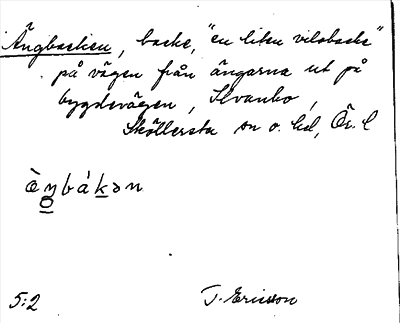 Ängbacken, backe, "en liten vilobacke"
på vägen från ängarna ut på
bygdevägen, Ilvanbo,
Sköllersta sn o. hd, Ör. l
ὲŋbákən
5:2 T. Ericsson